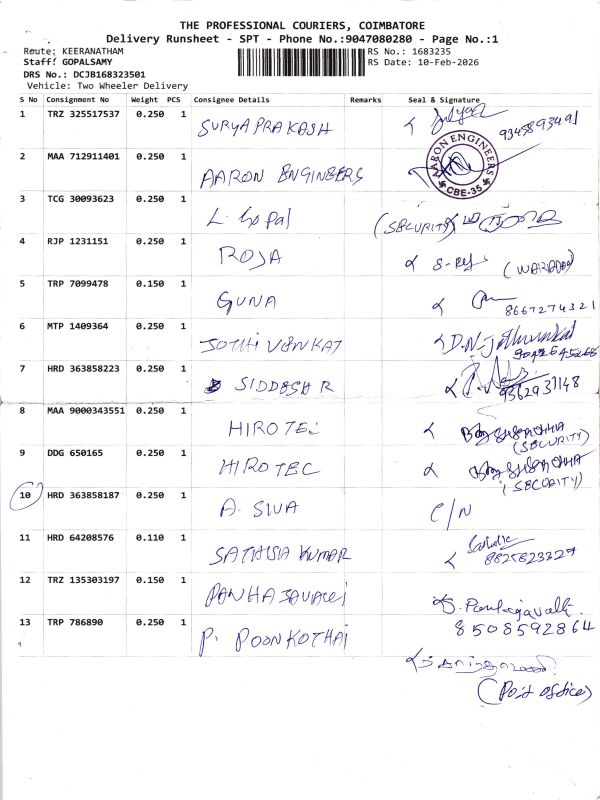 THE PROFESSIONAL COURIERS, COIMBATORE
Delivery Runsheet - SPT - Phone No.:9047080280 - Page No.:1
Route: KEERANATHAM
Staff: GOPALSAMY
DRS No.: DCJB168323501
Vehicle: Two Wheeler Delivery
RS No.: 1683235
RS Date: 10-Feb-2026
S No Consignment No Weight PCS Consignee Details Remarks Seal & Signature
1 TRZ 325517537 0.250 1 SURYA PRAKASH 9345893491
2 MAA 712911401 0.250 1 AARON ENGINEERS AARON ENGINEERS CBE-35
3 TCG 30093623 0.250 1 L. Gopal (SECURITY)
4 RJP 1231151 0.250 1 ROJA
5 TRP 7099478 0.150 1 GUNA 8667274321
6 MTP 1409364 0.250 1 JOTHI VENKAT D.N. Jothivenkat
7 HRD 363858223 0.250 1 SIDDESH R 9362931148
8 MAA 9000343551 0.250 1 HIROTEC (SECURITY)
9 DDG 650165 0.250 1 HIROTEC (SECURITY)
10 HRD 363858187 0.250 1 A. SIVA C/N
11 HRD 64208576 0.110 1 SATHISH KUMAR 8825823329
12 TRZ 135303197 0.150 1 8508592864
13 TRP 786890 0.250 1 P. POONKOTHAI
(Post office)